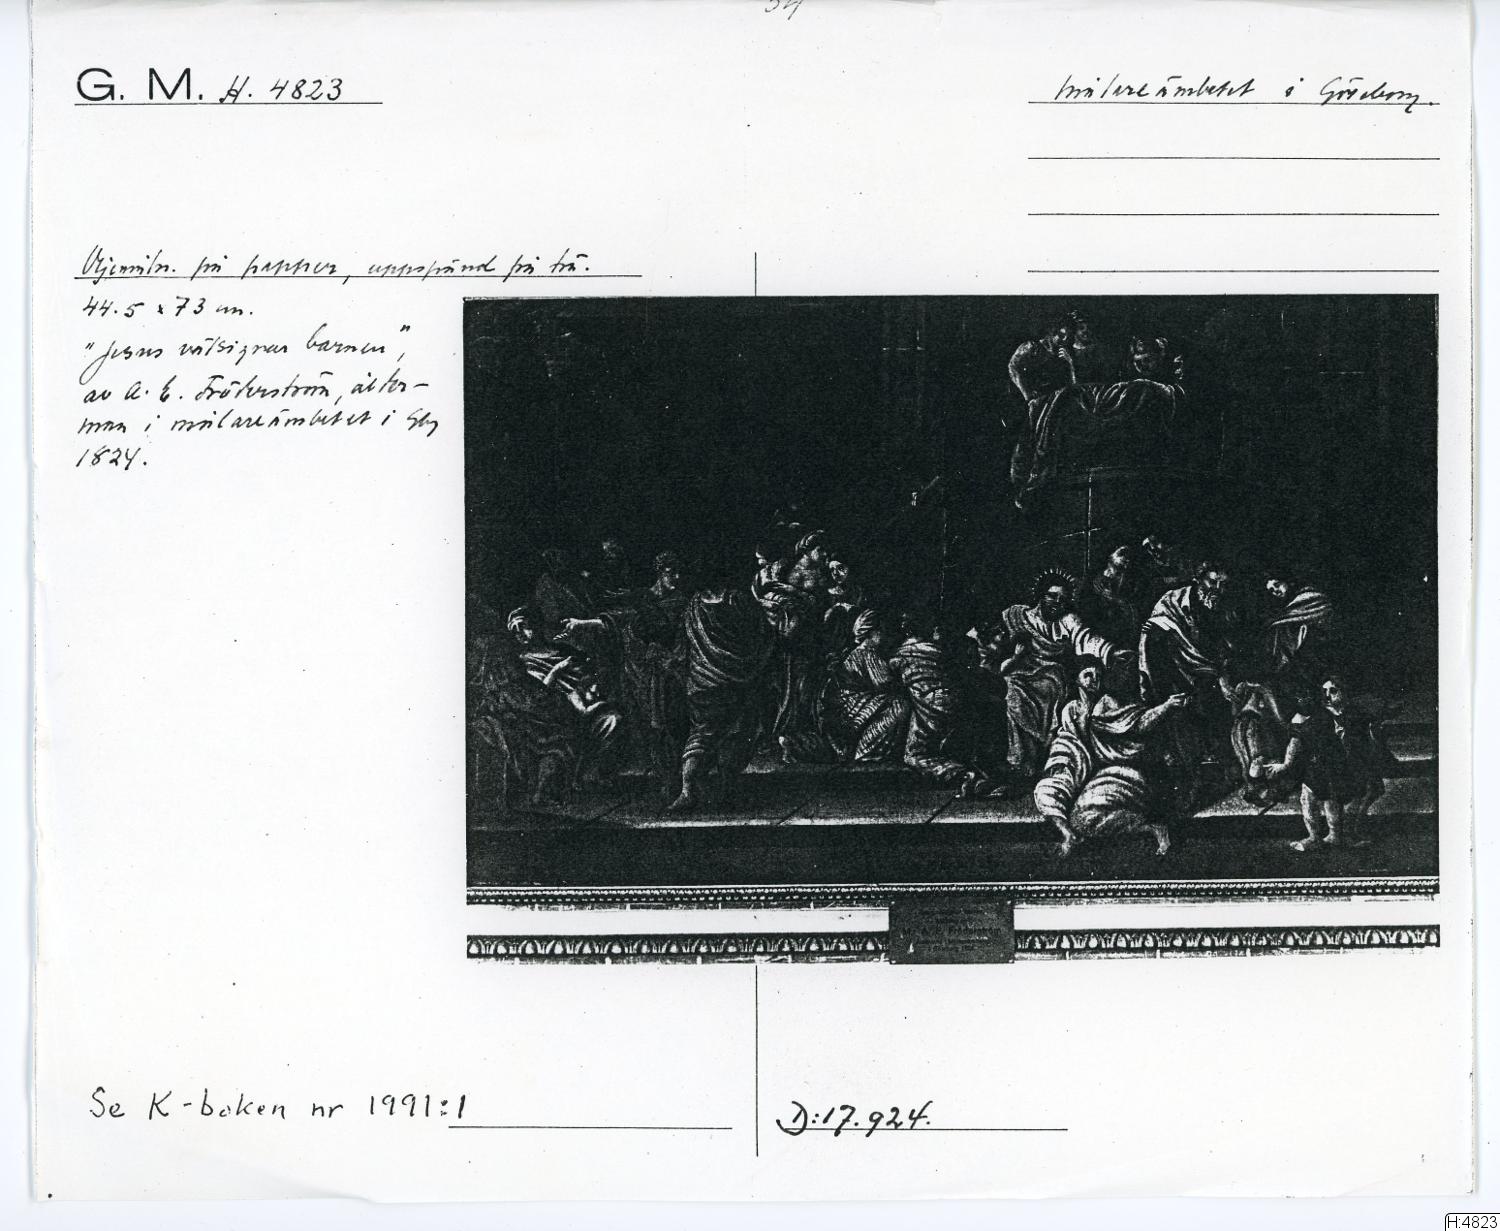 34
G. M. H. 4823
Målareämbetet i Göteborg.
Oljemåln. på papper, uppspänd på trä.
44.5 x 73 cm.
"Jesus välsignar barnen",
av A. E. Fröderström, ålder-
man i målareämbetet i Gbg
1824.
Se K-boken nr 1991:1
D:17.924.
H:4823